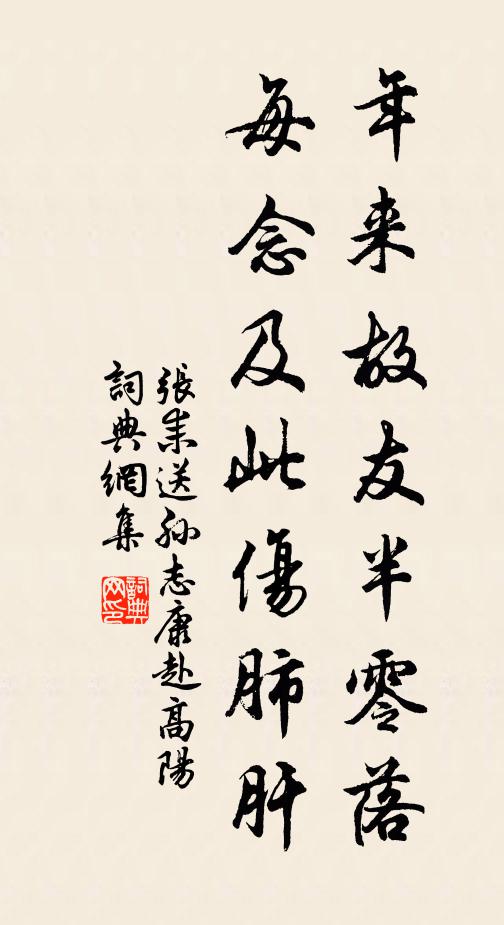 年来故友半零落
每念及此傷肺肝
張耒送孫志康赴高陽
詞典網集
詞典
网印